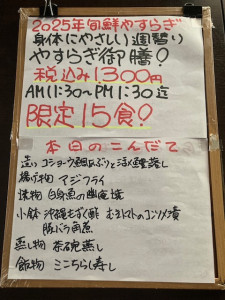 2025年旬鮮やすらぎ
身体にやさしい週替り
やすらぎ御膳!
税込み1300円
AM11:30〜PM1:30迄
限定15食!
本日のこんだて
造り コショウ鯛あぶりと活〆鰹落し
揚げ物 アジフライ
焼物 白身魚の幽庵焼
小鉢 沖縄もずく酢 ミニトマトのコンソメ漬
豚バラ角煮
蒸し物 茶碗蒸し
飯物 ミニちらし寿し